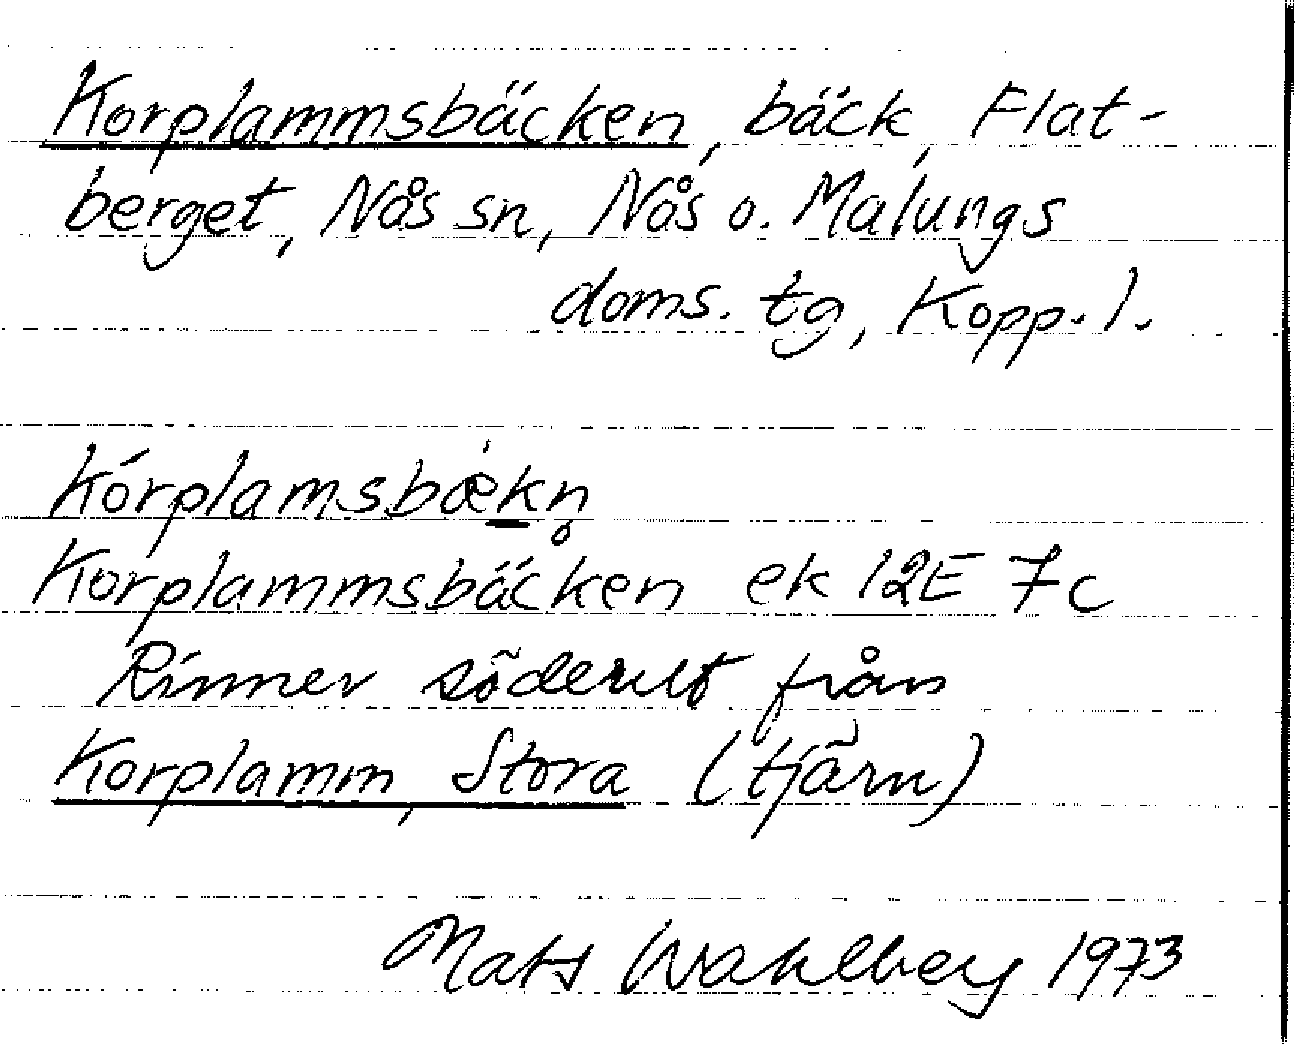 Korplammsbäcken, bäck, Flat-
berget, Nås sn, Nås o. Malungs
doms. tg, Kopp. l.
kórplamsbæ̀kn̥
Korplammsbäcken ek 12E 7c
Rinner söderut från
Korplamm, Stora (tjärn)
Mats Wahlberg 1973